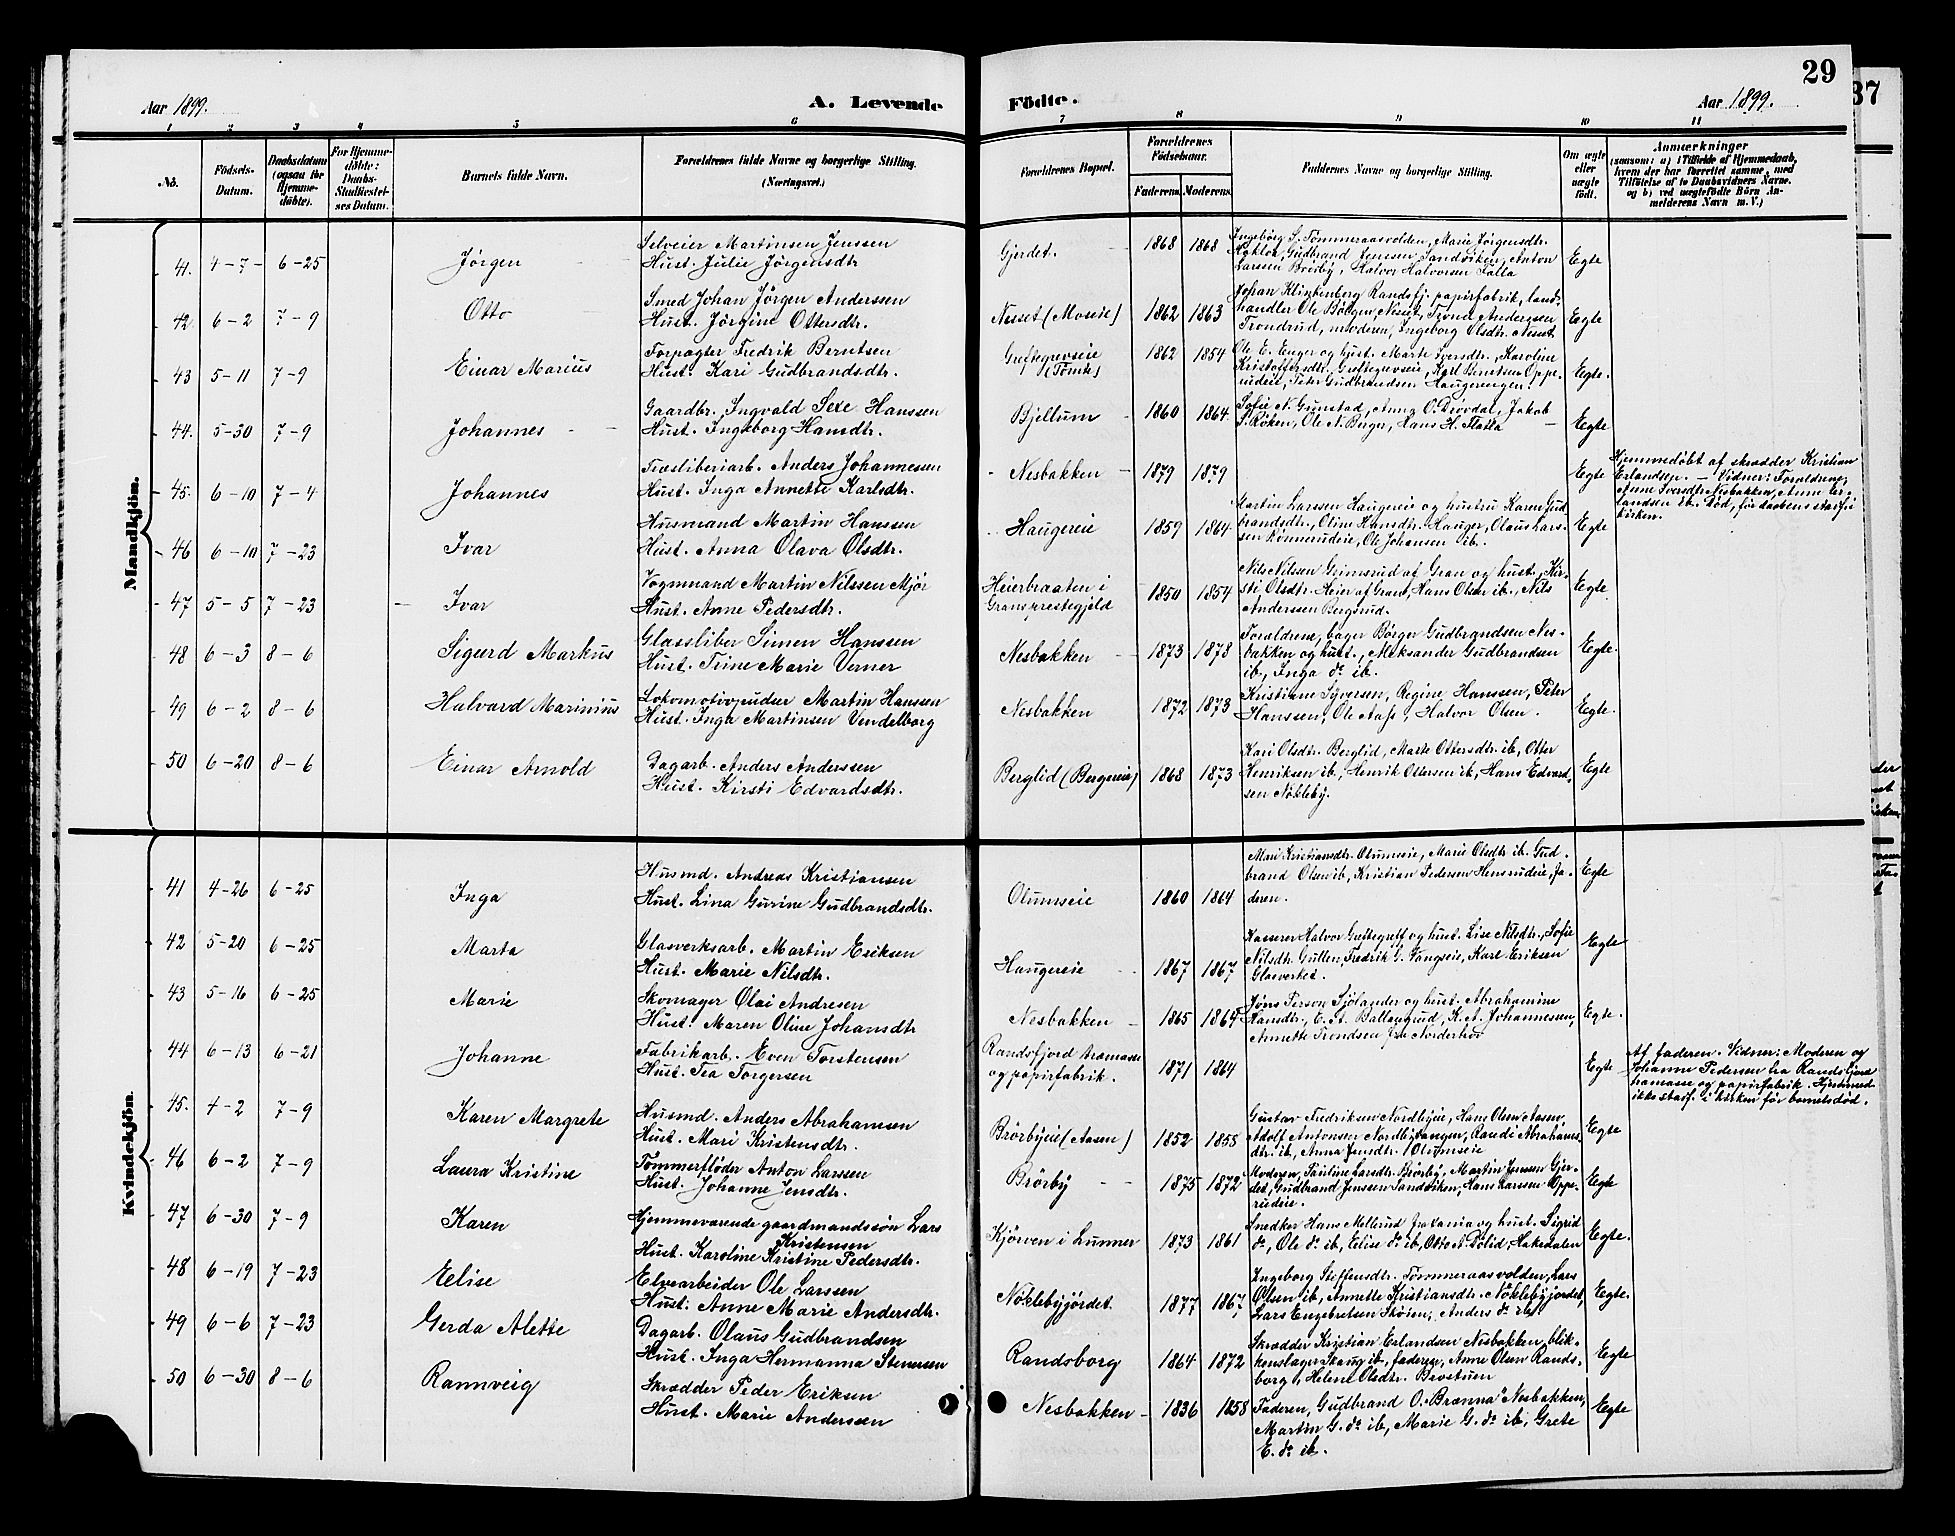 29
37
Aar 1899.
A. Levende Födte.
Aar 1899.
1 2 3 4 5 6 7 8 9 10 11
No.
Födsels-Datum.
Daabsdatum (ogsaa for Hjemmedöbte).
For Hjemmedöbte: Daabs-Stadfæstelses Datum.
Barnets fulde Navn.
Forældrenes fulde Navne og borgerlige Stilling. (Næringsvei.)
Forældrenes Bopæl.
Forældrenes Födselsaar.
Faderens.
Moderens.
Faddernes Navne og borgerlige Stilling.
Om ægte eller uægte födt.
Anmærkninger
(saasom: a) i Tilfælde af Hjemmedaab, hvem der har forrettet samme, med Tilföielse af to Daabsvidners Navne, og b) ved uægtefödte Börn Anmelderens Navn m. V.)
Mandkjön.
41. 4-7- 6-25 Jörgen
Selveier Martinsen Jenssen
Hust. Julie Jörgensdtr
Gjerdet. 1868 1868
Ingebörg S. Tömmeraasvolden, Marie Jörgensdtr.
Gudbrand Jenssen Sandviken, Anton
Larssen Brörby, Halvor Halvorsen Falla
Egte
42. 6-2 7-9 Otto
Smed Johan Jörgen Anderssen
Hust. Jörgine Ottersdtr.
Nesset (Moseie) 1862 1863
Johan Klinkenberg Randsfj. papirfabrik, land-
handler Ole Böhgen, Nesset, Trond Anderssen
Trondrud, moderen, Ingeborg Olsdtr. Nesset
Egte
43 5-11 7-9 Einar Marius
Forpagter Fredrik Berntsen
Hust. Kari Gudbrandsdtr.
Greftegrevseie (Tomte) 1862 1854
Ole E. Enger og hust. Marte Iversdtr., Karoline
Kristoffersdtr. Greftegrevseie, Karl Berntsen Oppe-
rudeie, Peter Gudbrandsen Haugerengen.
Egte.
44. 5-30 7-9 Johannes
Gaardbr. Ingvald Sexe Hanssen
Hust. Ingeborg Hansdtr.
Bjellum 1860 1864
Sofie N. Gunstad, Anna O. Drövdal, Jakob
S. Röken, Ole N. Berger, Hans H. Flatla
Egte
45. 6-10 7-4 Johannes
Træsliberiarb. Anders Johannesen
Hust. Inga Annette Karlsdtr.
Nesbakken 1879 1879
Egte
Hjemmedöbt af skrædder Kristian
Erlandsen. - Vidner: Forældrene,
Anne Iversdtr. Nesbakken, Anne Er-
landsen ib. Död, för daabens stadf. i
kirken.
46 6-10 7-23 Ivar
Husmand Martin Hanssen
Hust. Anna Olava Olsdtr.
Haugereie 1859 1864
Martin Larssen Haugereie og hustru Karen Gud-
brandsdtr., Oline Hansdtr. Hauger, Olaus Lars-
sen Könnerudeie, Ole Johansen ib.
Egte
47 5-5 7-23 Ivar
Vognmand Martin Nilssen Mjör
Hust. Anne Pedersdtr.
Heierbraaten i
Grans prestegjeld 1850 1854
Nils Nilssen Grimsrud af Gran og hust., Kir-
sti Olsdtr. Heier af Gran, Hans Olsen ib., Nils
Anderssen Bergsrud.
Egte
48 6-3 8-6 Sigurd Markus
Glassliber Simen Hanssen
Hust. Trine Marie Verner
Nesbakken 1873 1878
Forældrene, bager Börger Gudbrandsen Nes-
bakken og hust., Aleksander Gudbrandsen
ib., Inga do ib.
Egte.
49 6-2 8-6 Halvard Marinius
Lokomotivpudser Martin Hanssen
Hust. Inga Martinsen Vendelborg
Nesbakken 1872 1873
Kristiane Syversen, Regine Hanssen, Peter
Hanssen, Ole Aass, Halvor Olsen.
Egte.
50 6-20 8-6 Einar Arnold
Dagarb. Anders Anderssen
Hust. Kirsti Edvardsdtr.
Berglid (Bergereie) 1868 1873
Kari Olsdtr. Berglid, Marte Ottersdtr. ib., Otter
Henriksen ib., Henrik Ottersen ib., Hans Edvard-
sen Nökleby.
Egte
Kvindekjön.
41 4-26 6-25 Inga
Husmd. Andreas Kristiansen
Hust. Lina Gurine Gudbrandsdtr.
Olumseie 1860 1864
Mari Kristiansdtr. Olumseie, Marie Olsdtr. ib. Gud-
brand Olsen ib., Kristian Pedersen Hensrudeie, fa-
deren.
Egte
42 5-20 6-25 Marta
Glasverksarb. Martin Eriksen
Hust. Marie Nilsdtr.
Haugereie 1867 1867
Kasserer Halvor Greftegreff og hust. Lise Nilsdtr., Sofie
Nilsdtr. Gullen, Fredrik G. Vangseie, Karl Eriksen
Glasverket.
Egte
43 5-16 6-25 Marie
Skomager Olai Andresen
Hust. Maren Oline Johansdtr
Nesbakken 1865 1864
Jöns Person Sjölander og hust. Abrahamine
Hansdtr., E. A. Ballangrud, K. A. Johannessen,
Annette Trondsen fra Norderhov
Egte.
44 6-13 6-21 Johanne
Fabrikarb. Even Torstensen
Hust. Tea Torgersen
Randsfjord træmasse
og papirfabrik. 1871 1864
Egte
Af faderen. Vidner: Moderen og
Johanne Pedersen fra Randsfjord
træmasse og papirfabrik. Hjemmed.
ikke stadf. i kirken för barnets död.
45. 4-2 7-9 Karen Margrete
Husmd. Anders Abrahamsen
Hust. Mari Kristensdtr.
Brörbyeie (Aasen) 1852 1855
Gustav Fredriksen Nordbyeie, Hans Olsen Aasen,
Adolf Antonsen Nordbytangen, Randi Abrahams-
dtr. ib., Anna Jensdtr. Olumseie
Egte
46 6-2 7-9 Laura Kristine
Tömmerflöder Anton Larssen
Hust. Johanne Jensdtr.
Brörby 1875 1872
Moderen, Pauline Larsdtr. Brörby, Martin Jenssen Gjer-
det, Gudbrand Jenssen Sandviken, Hans Larssen Oppe-
rudeie.
Egte
47 6-30 7-9 Karen
Hjemmeværende gaardmandssön Lars
Kristensen
Hust. Karoline Kristine Pedersdtr.
Kjörven i Lunner 1873 1861
Snedker Hans Mellerud fra Xania og hust. Sigrid
do, Ole do ib., Eelise do ib., Otto A. Dölid, Hakedalen
Egte.
48 6-19 7-23 Eelise
Elvearbeider Ole Larssen
Hust. Anne Marie Andersdtr.
Nöklebyjordet 1877 1867
Ingeborg Steffensdtr. Tömmeraasvolden, Lars
Olsen ib., Annette Kristiansdtr. Nöklebyjordet,
Lars Engebretsen Sköien, Anders do ib.
Egte.
49 6-6 7-23 Gerda Alette
Dagarb. Olaus Gudbrandsen
Hust. Inga Hermanna Stenersen
Randsborg 1864 1872
Skrædder Kristian Erlandsen Nesbakken, blik-
kenslager Skaug ib., faderen, Anne Olsen Rands-
borg, Helene Olsdtr. Brostuen
Egte
50 6-30 8-6 Rannveig
Skrædder Peder Eriksen
Hust. Marie Anderssen
Nesbakken 1836 1858
Faderen, Gudbrand O. Brænna Nesbakken,
Martin G. do ib., Marie G. do ib., Grete
E. do ib.
Egte